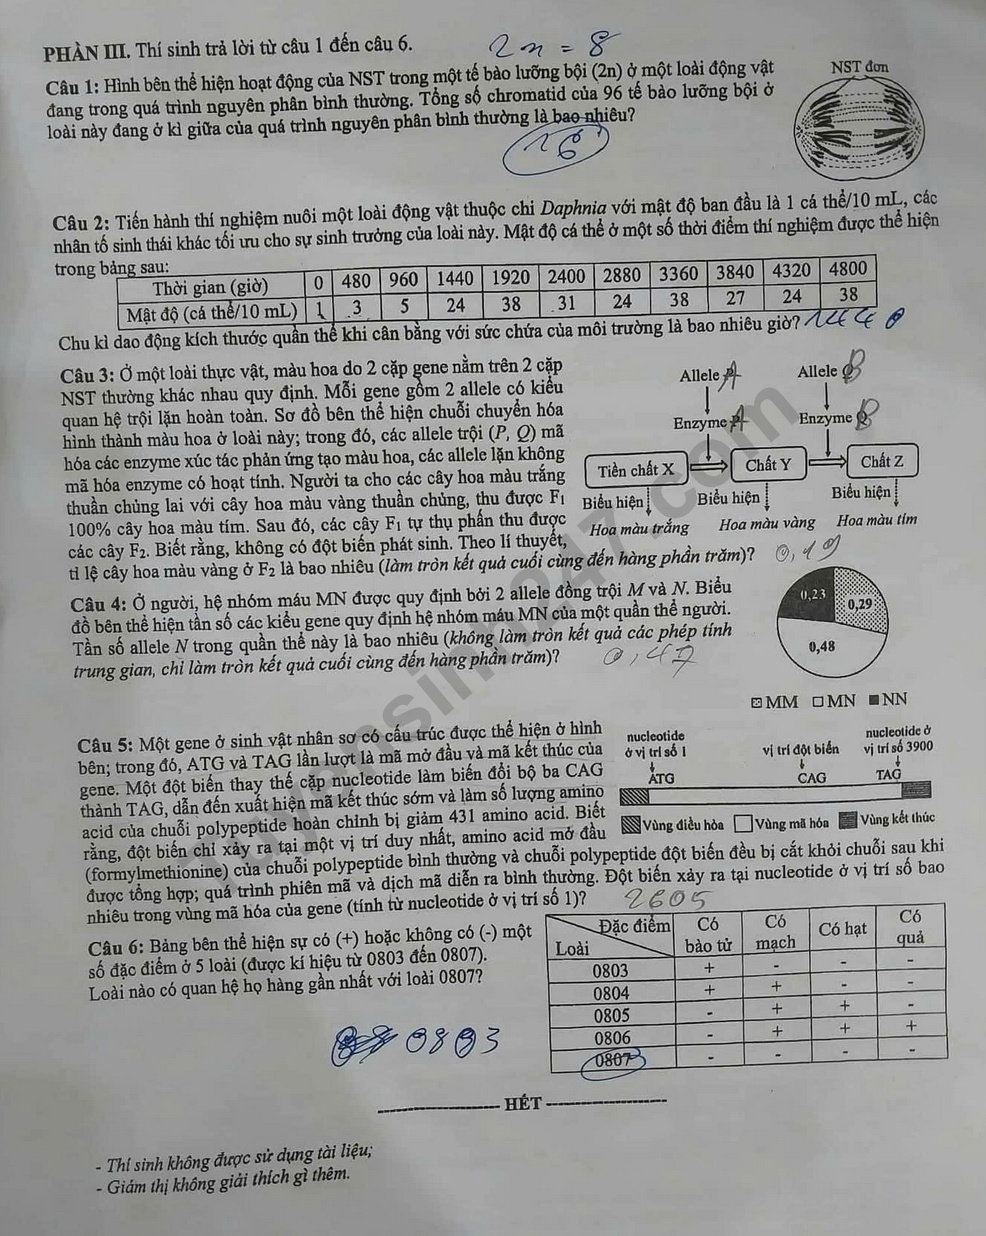 PHẦN III. Thí sinh trả lời từ câu 1 đến câu 6.
2n = 8
Câu 1: Hình bên thể hiện hoạt động của NST trong một tế bào lưỡng bội (2n) ở một loài động vật
đang trong quá trình nguyên phân bình thường. Tổng số chromatid của 96 tế bào lưỡng bội ở
loài này đang ở kì giữa của quá trình nguyên phân bình thường là bao nhiêu?
NST đơn
16
Câu 2: Tiến hành thí nghiệm nuôi một loài động vật thuộc chi Daphnia với mật độ ban đầu là 1 cá thể/10 mL, các
nhân tố sinh thái khác tối ưu cho sự sinh trưởng của loài này. Mật độ cá thể ở một số thời điểm thí nghiệm được thể hiện
trong bảng sau:
Thời gian (giờ) 0 480 960 1440 1920 2400 2880 3360 3840 4320 4800
Mật độ (cá thể/10 mL) 1 3 5 24 38 31 24 38 27 24 38
Chu kì dao động kích thước quần thể khi cân bằng với sức chứa của môi trường là bao nhiêu giờ? 1440
Câu 3: Ở một loài thực vật, màu hoa do 2 cặp gene nằm trên 2 cặp
NST thường khác nhau quy định. Mỗi gene gồm 2 allele có kiểu
quan hệ trội lặn hoàn toàn. Sơ đồ bên thể hiện chuỗi chuyển hóa
hình thành màu hoa ở loài này; trong đó, các allele trội (P, Q) mã
hóa các enzyme xúc tác phản ứng tạo màu hoa, các allele lặn không
mã hóa enzyme có hoạt tính. Người ta cho các cây hoa màu trắng
thuần chủng lai với cây hoa màu vàng thuần chủng, thu được F1
100% cây hoa màu tím. Sau đó, các cây F1 tự thụ phấn thu được
các cây F2. Biết rằng, không có đột biến phát sinh. Theo lí thuyết,
tỉ lệ cây hoa màu vàng ở F2 là bao nhiêu (làm tròn kết quả cuối cùng đến hàng phần trăm)? 0,19
Allele A Allele B
Enzyme A Enzyme B
Tiền chất X Chất Y Chất Z
Biểu hiện Biểu hiện Biểu hiện
Hoa màu trắng Hoa màu vàng Hoa màu tím
Câu 4: Ở người, hệ nhóm máu MN được quy định bởi 2 allele đồng trội M và N. Biểu
đồ bên thể hiện tần số các kiểu gene quy định hệ nhóm máu MN của một quần thể người.
Tần số allele N trong quần thể này là bao nhiêu (không làm tròn kết quả các phép tính
trung gian, chỉ làm tròn kết quả cuối cùng đến hàng phần trăm)? 0,47
0,23 0,29
0,48
MM MN NN
Câu 5: Một gene ở sinh vật nhân sơ có cấu trúc được thể hiện ở hình
bên; trong đó, ATG và TAG lần lượt là mã mở đầu và mã kết thúc của
gene. Một đột biến thay thế cặp nucleotide làm biến đổi bộ ba CAG
thành TAG, dẫn đến xuất hiện mã kết thúc sớm và làm số lượng amino
acid của chuỗi polypeptide hoàn chỉnh bị giảm 431 amino acid. Biết
rằng, đột biến chỉ xảy ra tại một vị trí duy nhất, amino acid mở đầu
(formylmethionine) của chuỗi polypeptide bình thường và chuỗi polypeptide đột biến đều bị cắt khỏi chuỗi sau khi
được tổng hợp; quá trình phiên mã và dịch mã diễn ra bình thường. Đột biến xảy ra tại nucleotide ở vị trí số bao
nhiêu trong vùng mã hóa của gene (tính từ nucleotide ở vị trí số 1)? 2605
nucleotide
ở vị trí số 1
vị trí đột biến
nucleotide ở
vị trí số 3900
ATG CAG TAG
Vùng điều hòa Vùng mã hóa Vùng kết thúc
Câu 6: Bảng bên thể hiện sự có (+) hoặc không có (-) một
số đặc điểm ở 5 loài (được kí hiệu từ 0803 đến 0807).
Loài nào có quan hệ họ hàng gần nhất với loài 0807?
0803
Đặc điểm Có bào tử Có mạch Có hạt Có quả
Loài
0803 + - - -
0804 + + - -
0805 - + + -
0806 - + + +
0807 - - - -
HẾT
- Thí sinh không được sử dụng tài liệu;
- Giám thị không giải thích gì thêm.
Tuyensinh247.com